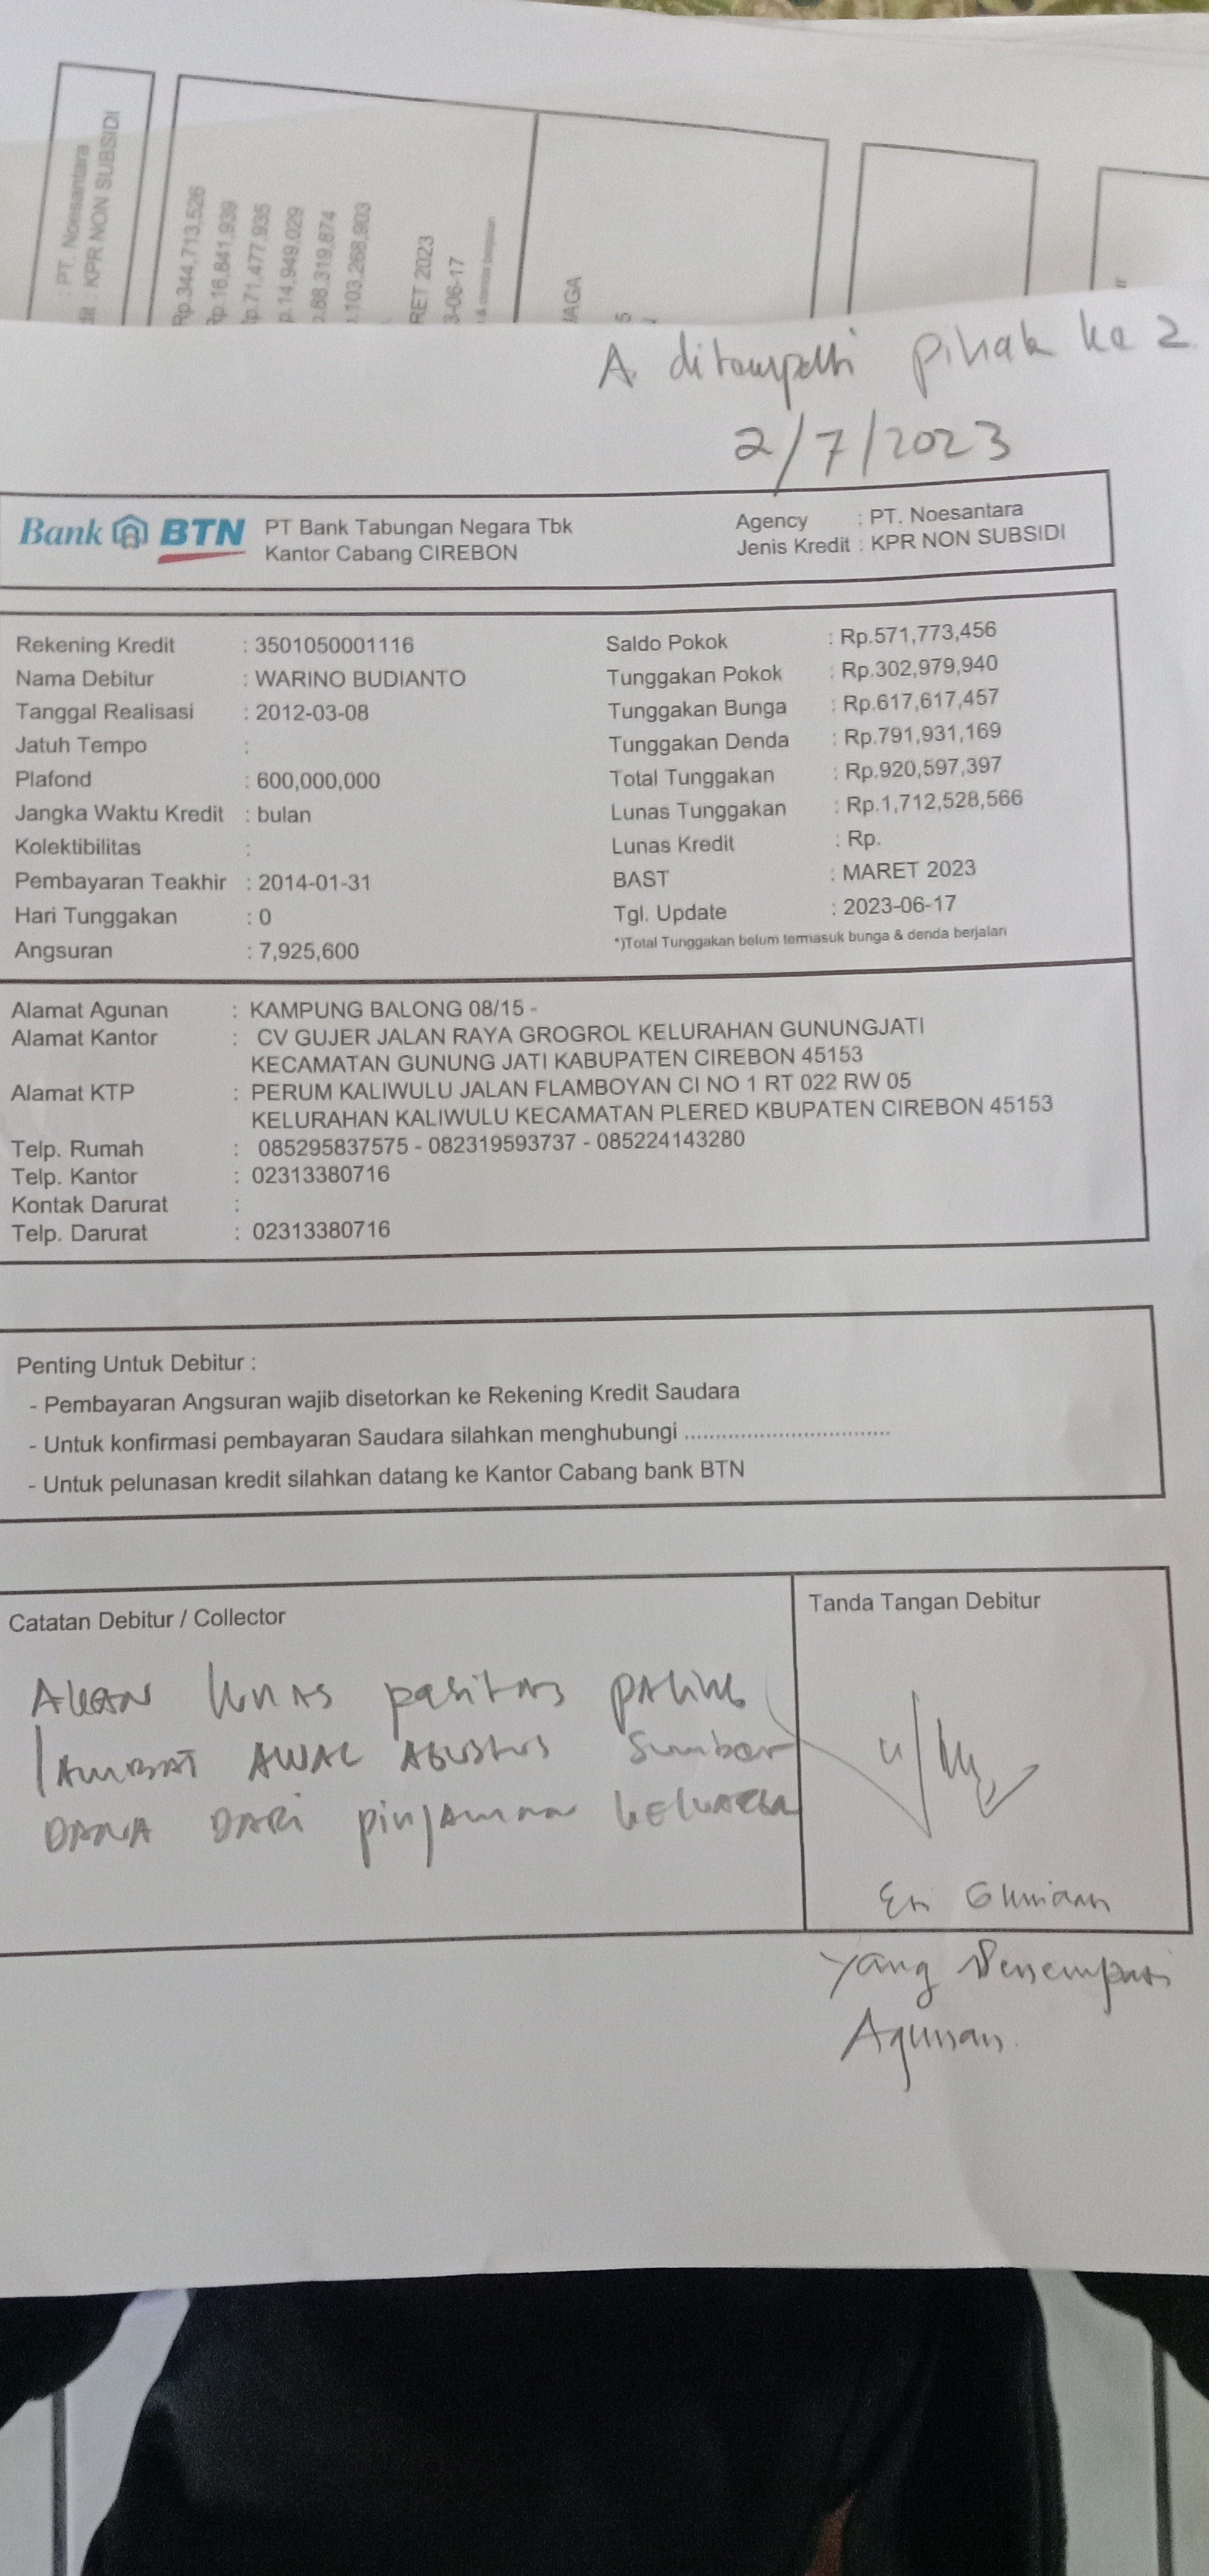 : PT. Noesantara
dit : KPR NON SUBSIDI
Rp.344,713,526
Rp.16,841,939
Rp.71,477,935
p.14,949,029
p.88,319,874
.103,268,903
RET 2023
3-06-17
& denda berjalan
JAGA
5
A. ditempati pihak ke 2
2/7/2023
Bank BTN PT Bank Tabungan Negara Tbk Agency : PT. Noesantara
Kantor Cabang CIREBON Jenis Kredit : KPR NON SUBSIDI
Rekening Kredit : 3501050001116 Saldo Pokok : Rp.571,773,456
Nama Debitur : WARINO BUDIANTO Tunggakan Pokok : Rp.302,979,940
Tanggal Realisasi : 2012-03-08 Tunggakan Bunga : Rp.617,617,457
Jatuh Tempo : Tunggakan Denda : Rp.791,931,169
Plafond : 600,000,000 Total Tunggakan : Rp.920,597,397
Jangka Waktu Kredit : bulan Lunas Tunggakan : Rp.1,712,528,566
Kolektibilitas : Lunas Kredit : Rp.
Pembayaran Teakhir : 2014-01-31 BAST : MARET 2023
Hari Tunggakan : 0 Tgl. Update : 2023-06-17
Angsuran : 7,925,600 *)Total Tunggakan belum termasuk bunga & denda berjalan
Alamat Agunan : KAMPUNG BALONG 08/15 -
Alamat Kantor : CV GUJER JALAN RAYA GROGROL KELURAHAN GUNUNGJATI
KECAMATAN GUNUNG JATI KABUPATEN CIREBON 45153
Alamat KTP : PERUM KALIWULU JALAN FLAMBOYAN CI NO 1 RT 022 RW 05
KELURAHAN KALIWULU KECAMATAN PLERED KBUPATEN CIREBON 45153
Telp. Rumah : 085295837575 - 082319593737 - 085224143280
Telp. Kantor : 02313380716
Kontak Darurat :
Telp. Darurat : 02313380716
Penting Untuk Debitur :
- Pembayaran Angsuran wajib disetorkan ke Rekening Kredit Saudara
- Untuk konfirmasi pembayaran Saudara silahkan menghubungi ................................
- Untuk pelunasan kredit silahkan datang ke Kantor Cabang bank BTN
Catatan Debitur / Collector Tanda Tangan Debitur
AKAN lunas pasitas paling
lambat AWAL AGUSTUS Sumber
DANA DARI pinjaman keluarga
yang Menempati
Agunan.